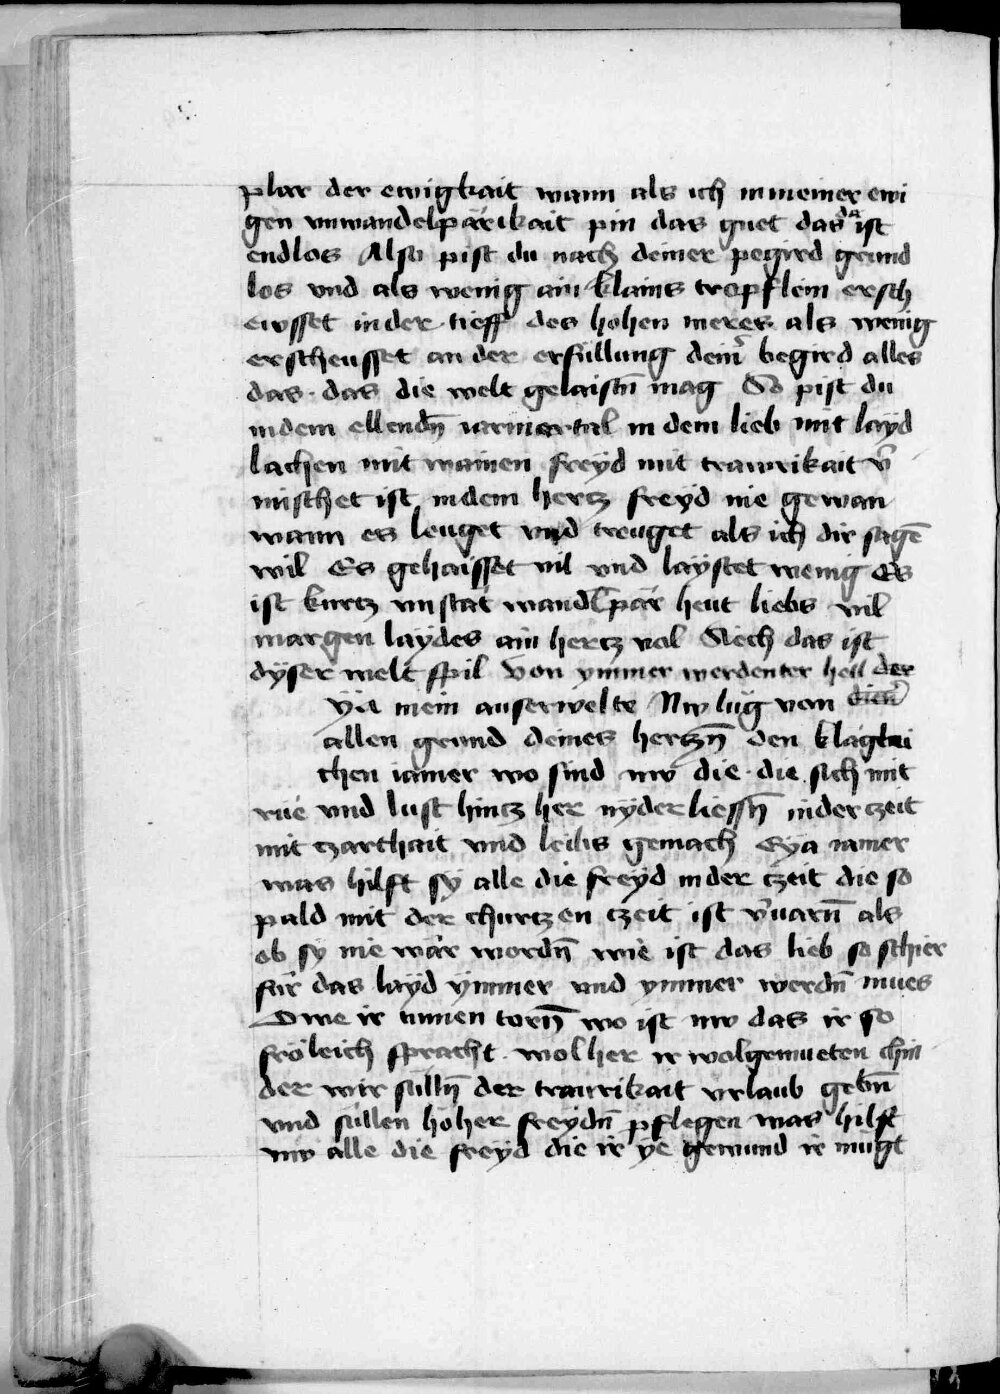 plar der ewigkait wann als ich in meiner ewi
gen vnwandelpärikait pin das guet das da ist
endlos Also pist du nach deiner pegird grund
los vnd als wenig ain klains tropflein ersch
ewsset in der tieff des hohen meres als wenig
erscheusset an der erfüllung deinr begird alles
das · das die welt gelaistn̄ mag So pist du
in dem ellendn̄ iamertal in dem lieb mit layd
lachen mit wainen freyd mit trawrikait v̄
mischet ist in dem hertz freyd nie gewan
wann es leuget vnd treuget als ich dir sagē
wil Es gehaisset vil vnd laystet wenig Es
ist kurtz vnstät wandlpär heut liebs vil
margen laydes ain hertz vol Siech das ist
dyser welt spil Von ymmer werdenter hell der
Ya mein auserwelte Nw lüg von
allen grund deines hertzn̄ den kläglei
chen iamer wo sind nw die · die sich mit
rüe vnd lust hintz her nyder liessn̄ in der czeit
mit czarthait vnd leibs gemach Eya iamer
was hilft sy alle die freyd in der czeit die so
pald mit der churtzen czeit ist v̄uarn̄ als
ob sy nie wär wordn̄ wie ist das lieb so schier
für das layd ymmer vnd ymmer werdn̄ mues
O we ir tummen torn̄ wo ist nw das ir so
fröleich spracht · wol her ir wolgemueten chin
der wir sülln̄ der trawrikait vrlaub gebn̄
vnd süllen hoher freydn̄ pflegen was hilft
nw alle die freyd die ir ye gewund ir mügt